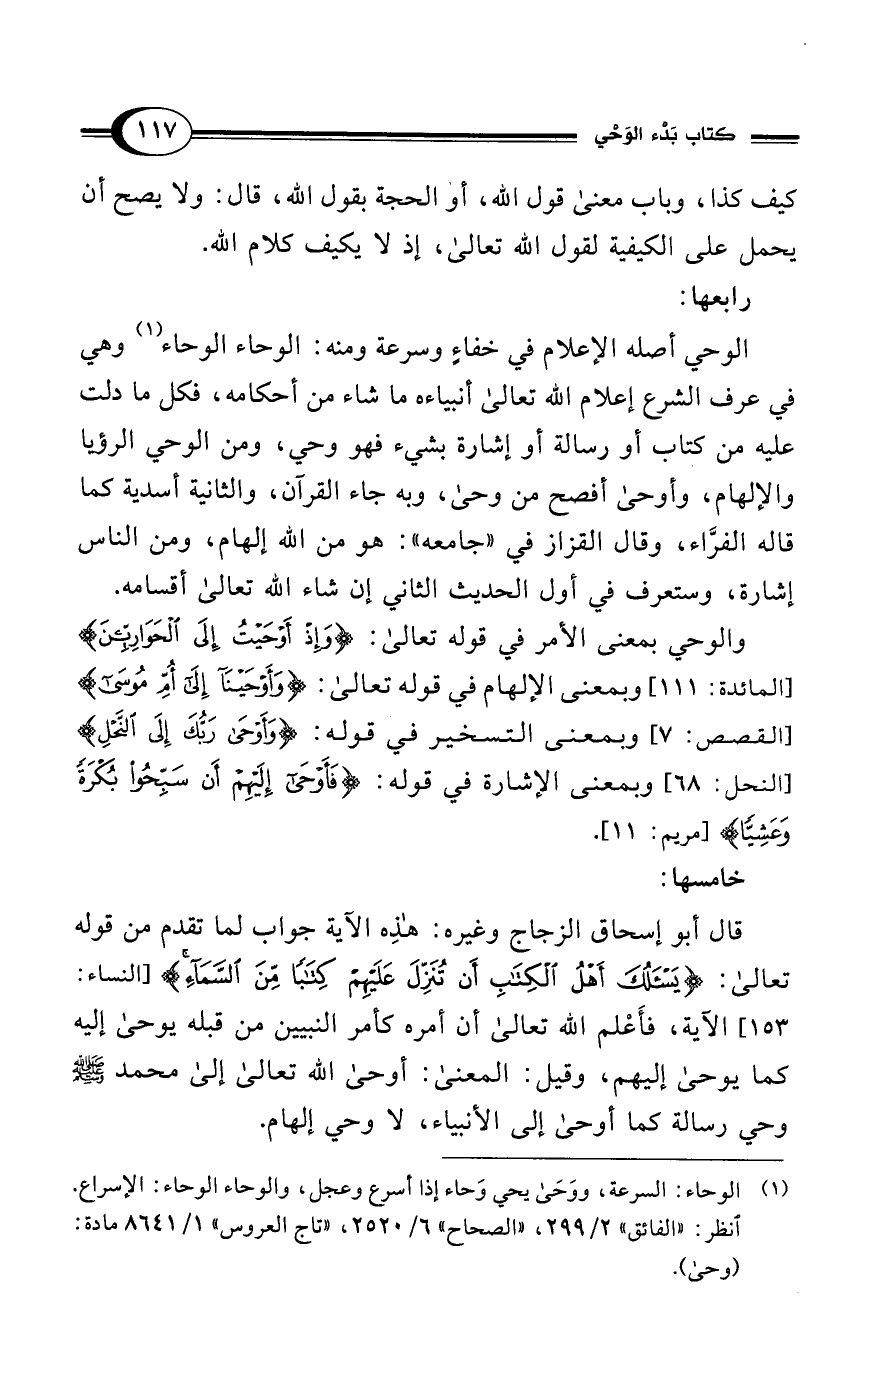 كتاب بَدْء الوَحْي
١١٧
كيف كذا، وباب معنىٰ قول الله، أو الحجة بقول الله، قال: ولا يصح أن
يحمل على الكيفية لقول الله تعالىٰ، إذ لا يكيف كلام الله.
رابعها:
الوحي أصله الإعلام في خفاءٍ وسرعة ومنه: الوحاء الوحاء(١) وهي
في عرف الشرع إعلام الله تعالىٰ أنبياءه ما شاء من أحكامه، فكل ما دلت
عليه من كتاب أو رسالة أو إشارة بشيء فهو وحي، ومن الوحي الرؤيا
والإلهام، وأوحىٰ أفصح من وحىٰ، وبه جاء القرآن، والثانية أسدية كما
قاله الفرَّاء، وقال القزاز في «جامعه»: هو من الله إلهام، ومن الناس
إشارة، وستعرف في أول الحديث الثاني إن شاء الله تعالىٰ أقسامه.
والوحي بمعنى الأمر في قوله تعالىٰ: ﴿وَإِذْ أَوْحَيْتُ إِلَى ٱلْحَوَارِيِّـۧنَ﴾
[المائدة: ١١١] وبمعنى الإلهام في قوله تعالىٰ: ﴿وَأَوْحَيْنَآ إِلَىٰٓ أُمِّ مُوسَىٰٓ﴾
[القصص: ٧] وبمعنى التسخير في قوله: ﴿وَأَوْحَىٰ رَبُّكَ إِلَى ٱلنَّحْلِ﴾
[النحل: ٦٨] وبمعنى الإشارة في قوله: ﴿فَأَوْحَىٰٓ إِلَيْهِمْ أَن سَبِّحُوا۟ بُكْرَةً
وَعَشِيًّا﴾ [مريم: ١١].
خامسها:
قال أبو إسحاق الزجاج وغيره: هذِه الآية جواب لما تقدم من قوله
تعالىٰ: ﴿يَسْـَٔلُكَ أَهْلُ ٱلْكِتَٰبِ أَن تُنَزِّلَ عَلَيْهِمْ كِتَٰبًا مِّنَ ٱلسَّمَآءِ ۚ﴾ [النساء:
١٥٣] الآية، فأَعْلم الله تعالىٰ أن أمره كأمر النبيين من قبله يوحىٰ إليه
كما يوحىٰ إليهم، وقيل: المعنىٰ: أوحىٰ الله تعالىٰ إلىٰ محمد ﷺ
وحي رسالة كما أوحىٰ إلى الأنبياء، لا وحي إلهام.
(١) الوحاء: السرعة، ووَحَىٰ يحي وَحاء إذا أسرع وعجل، والوحاء الوحاء: الإسراع.
ٱنظر: «الفائق» ٢/ ٢٩٩، «الصحاح» ٦/ ٢٥٢٠، «تاج العروس» ١/ ٨٦٤١ مادة:
(وحىٰ).